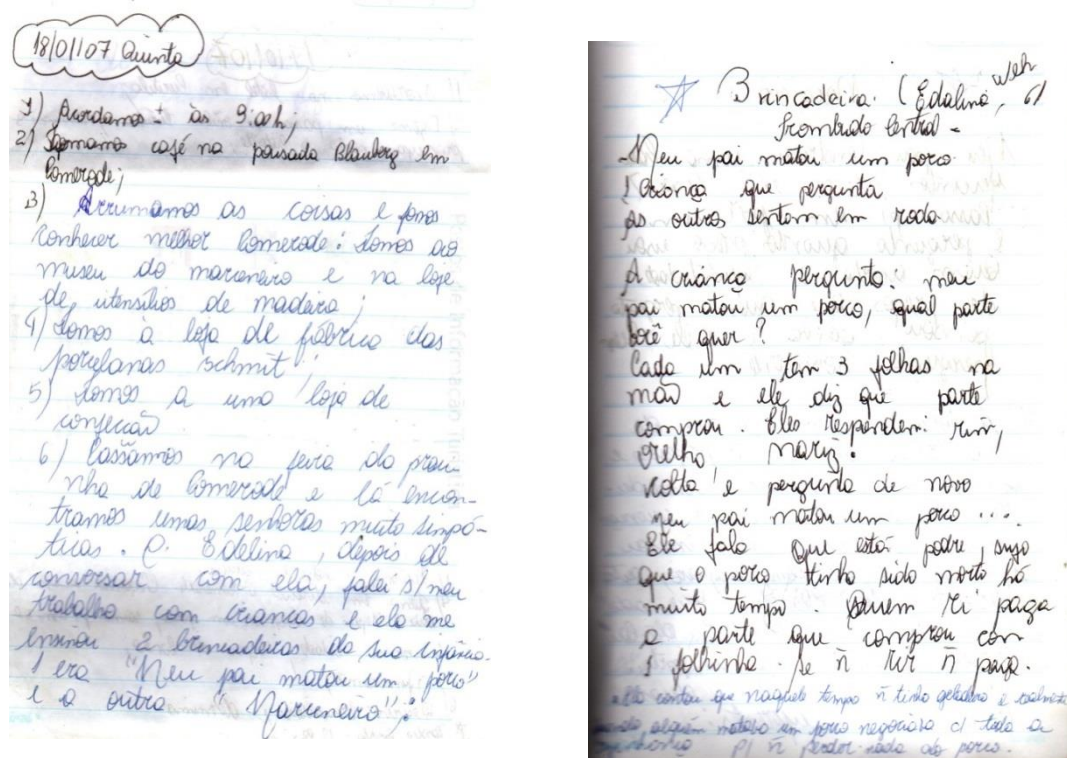 18/01/07 Quinta
1) Acordamos: às 9:00h;
2) Tomamos café na pousada Blauberg em
Pomerode;
3) Arrumamos as coisas e fomos
conhecer melhor Pomerode: Fomos ao
museu do marceneiro e na loja
de utensílios de madeira;
4) Fomos à loja de fábrica das
porcelanas Schmit;
5) Fomos a uma loja de
confecção.
6) Passamos na feira da praci-
nha de Pomerode e lá encon-
tramos umas senhoras muito simpá-
ticas. D. Edelina, depois de
conversar com ela, falei s/ meu
trabalho com crianças e ela me
ensinou 2 brincadeiras da sua infância.
1 era "Meu pai matou um porco"
e a outra "Marineiro":
Brincadeira. (Edalina,
Trombudo Central -
- Meu pai matou um porco.
1 criança que pergunta
as outras sentam em roda
A criança pergunta. meu
pai matou um porco, qual parte
você quer?
Cada um tem 3 folhas na
mão e ele diz que parte
comprou. Eles respondem: rim,
orelha, nariz!
volta e pergunta de novo
meu pai matou um porco ...
Ele fala que está podre, sujo
que o porco tinha sido morto há
muito tempo. Quem ri paga
a parte que comprou com
1 folhinha. Se ñ rir ñ paga.
Ela contou que naquele tempo ñ tinha geladeira e
quando alguém matava um porco negociava c/ toda a
p/ ñ perder nada do porco.